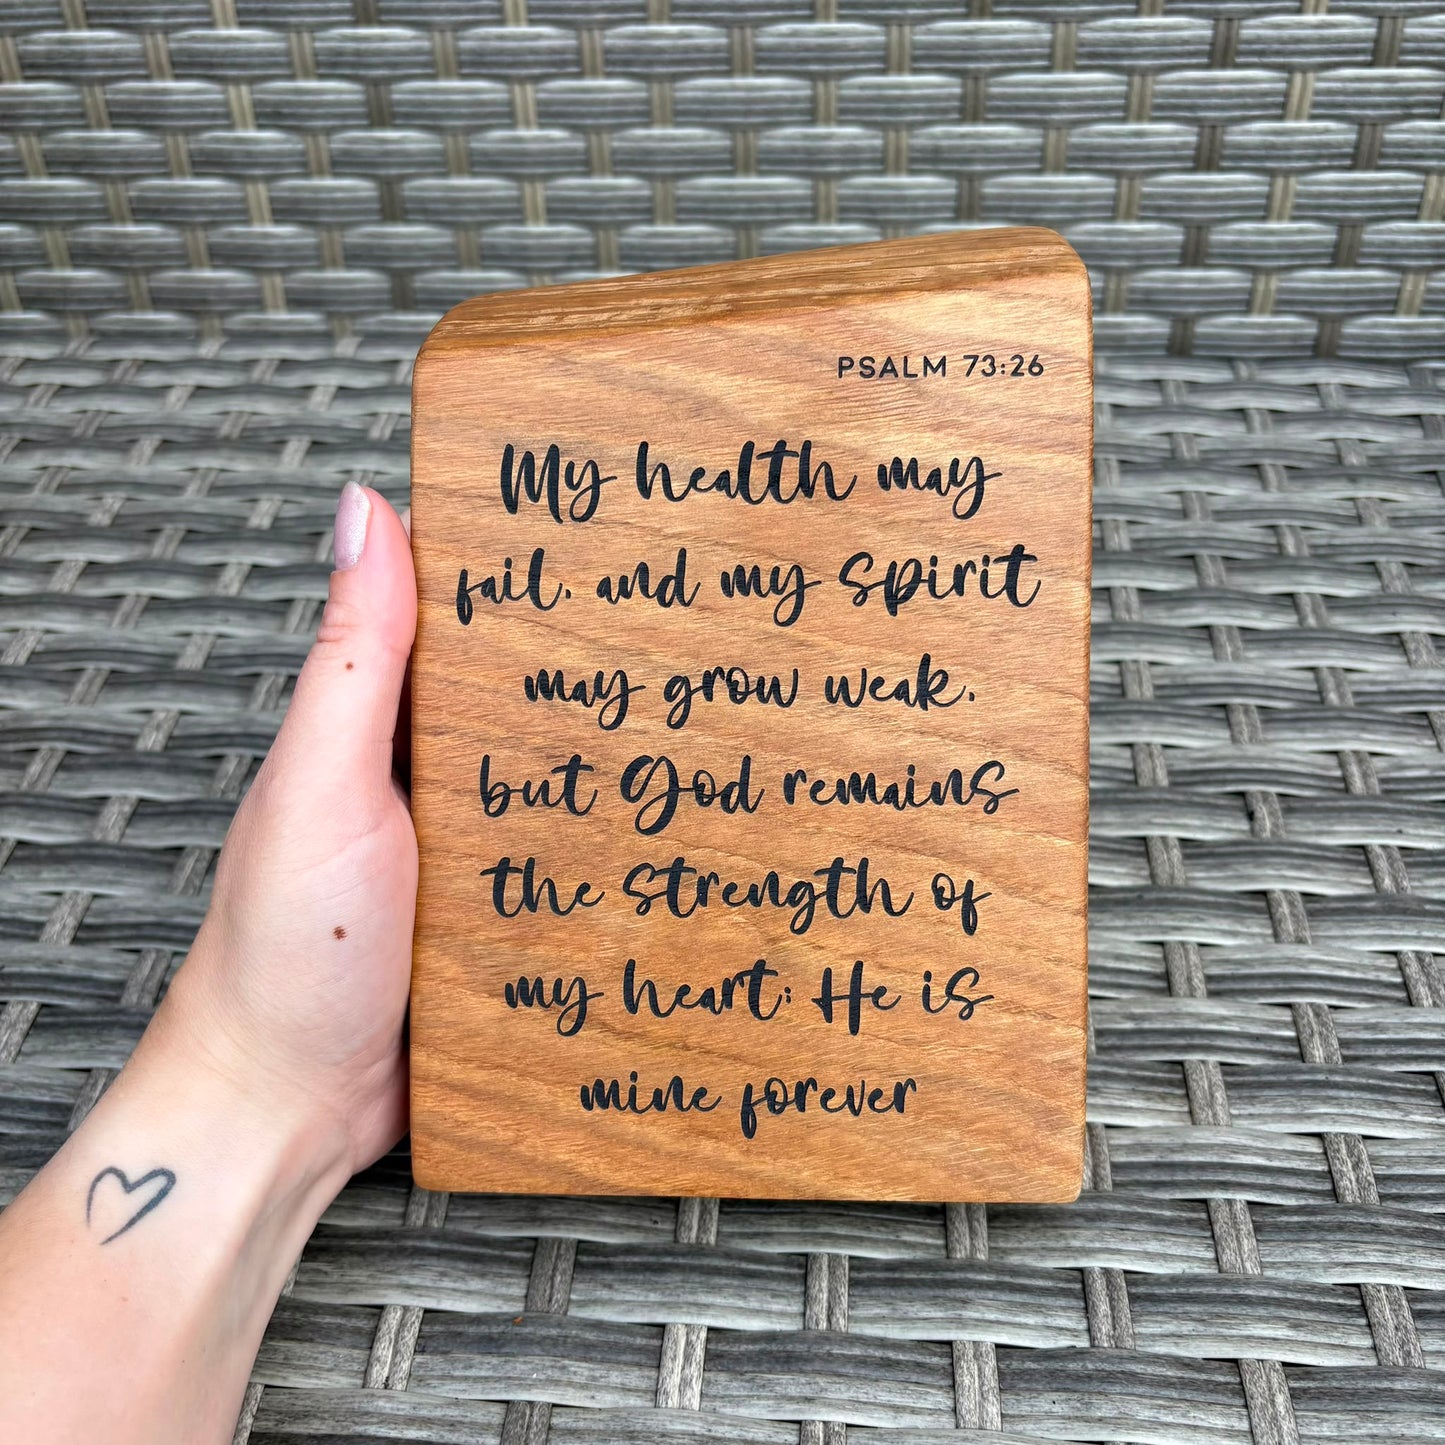 PSALM 73:26
My health may
fail, and my spirit
may grow weak,
but God remains
the strength of
my heart; He is
mine forever